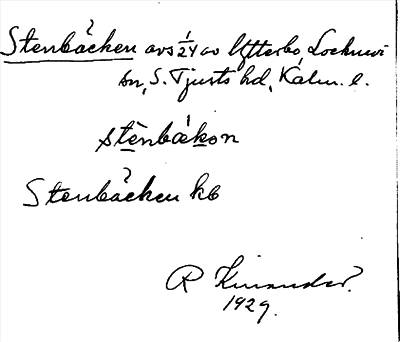 Stenbäcken avs 1/24 av Ytterbo Locknevi
sn, S. Tjusts hd, Kalm. l.
stènbäkon
Stenbäcken kb
R Kinander.
1929.